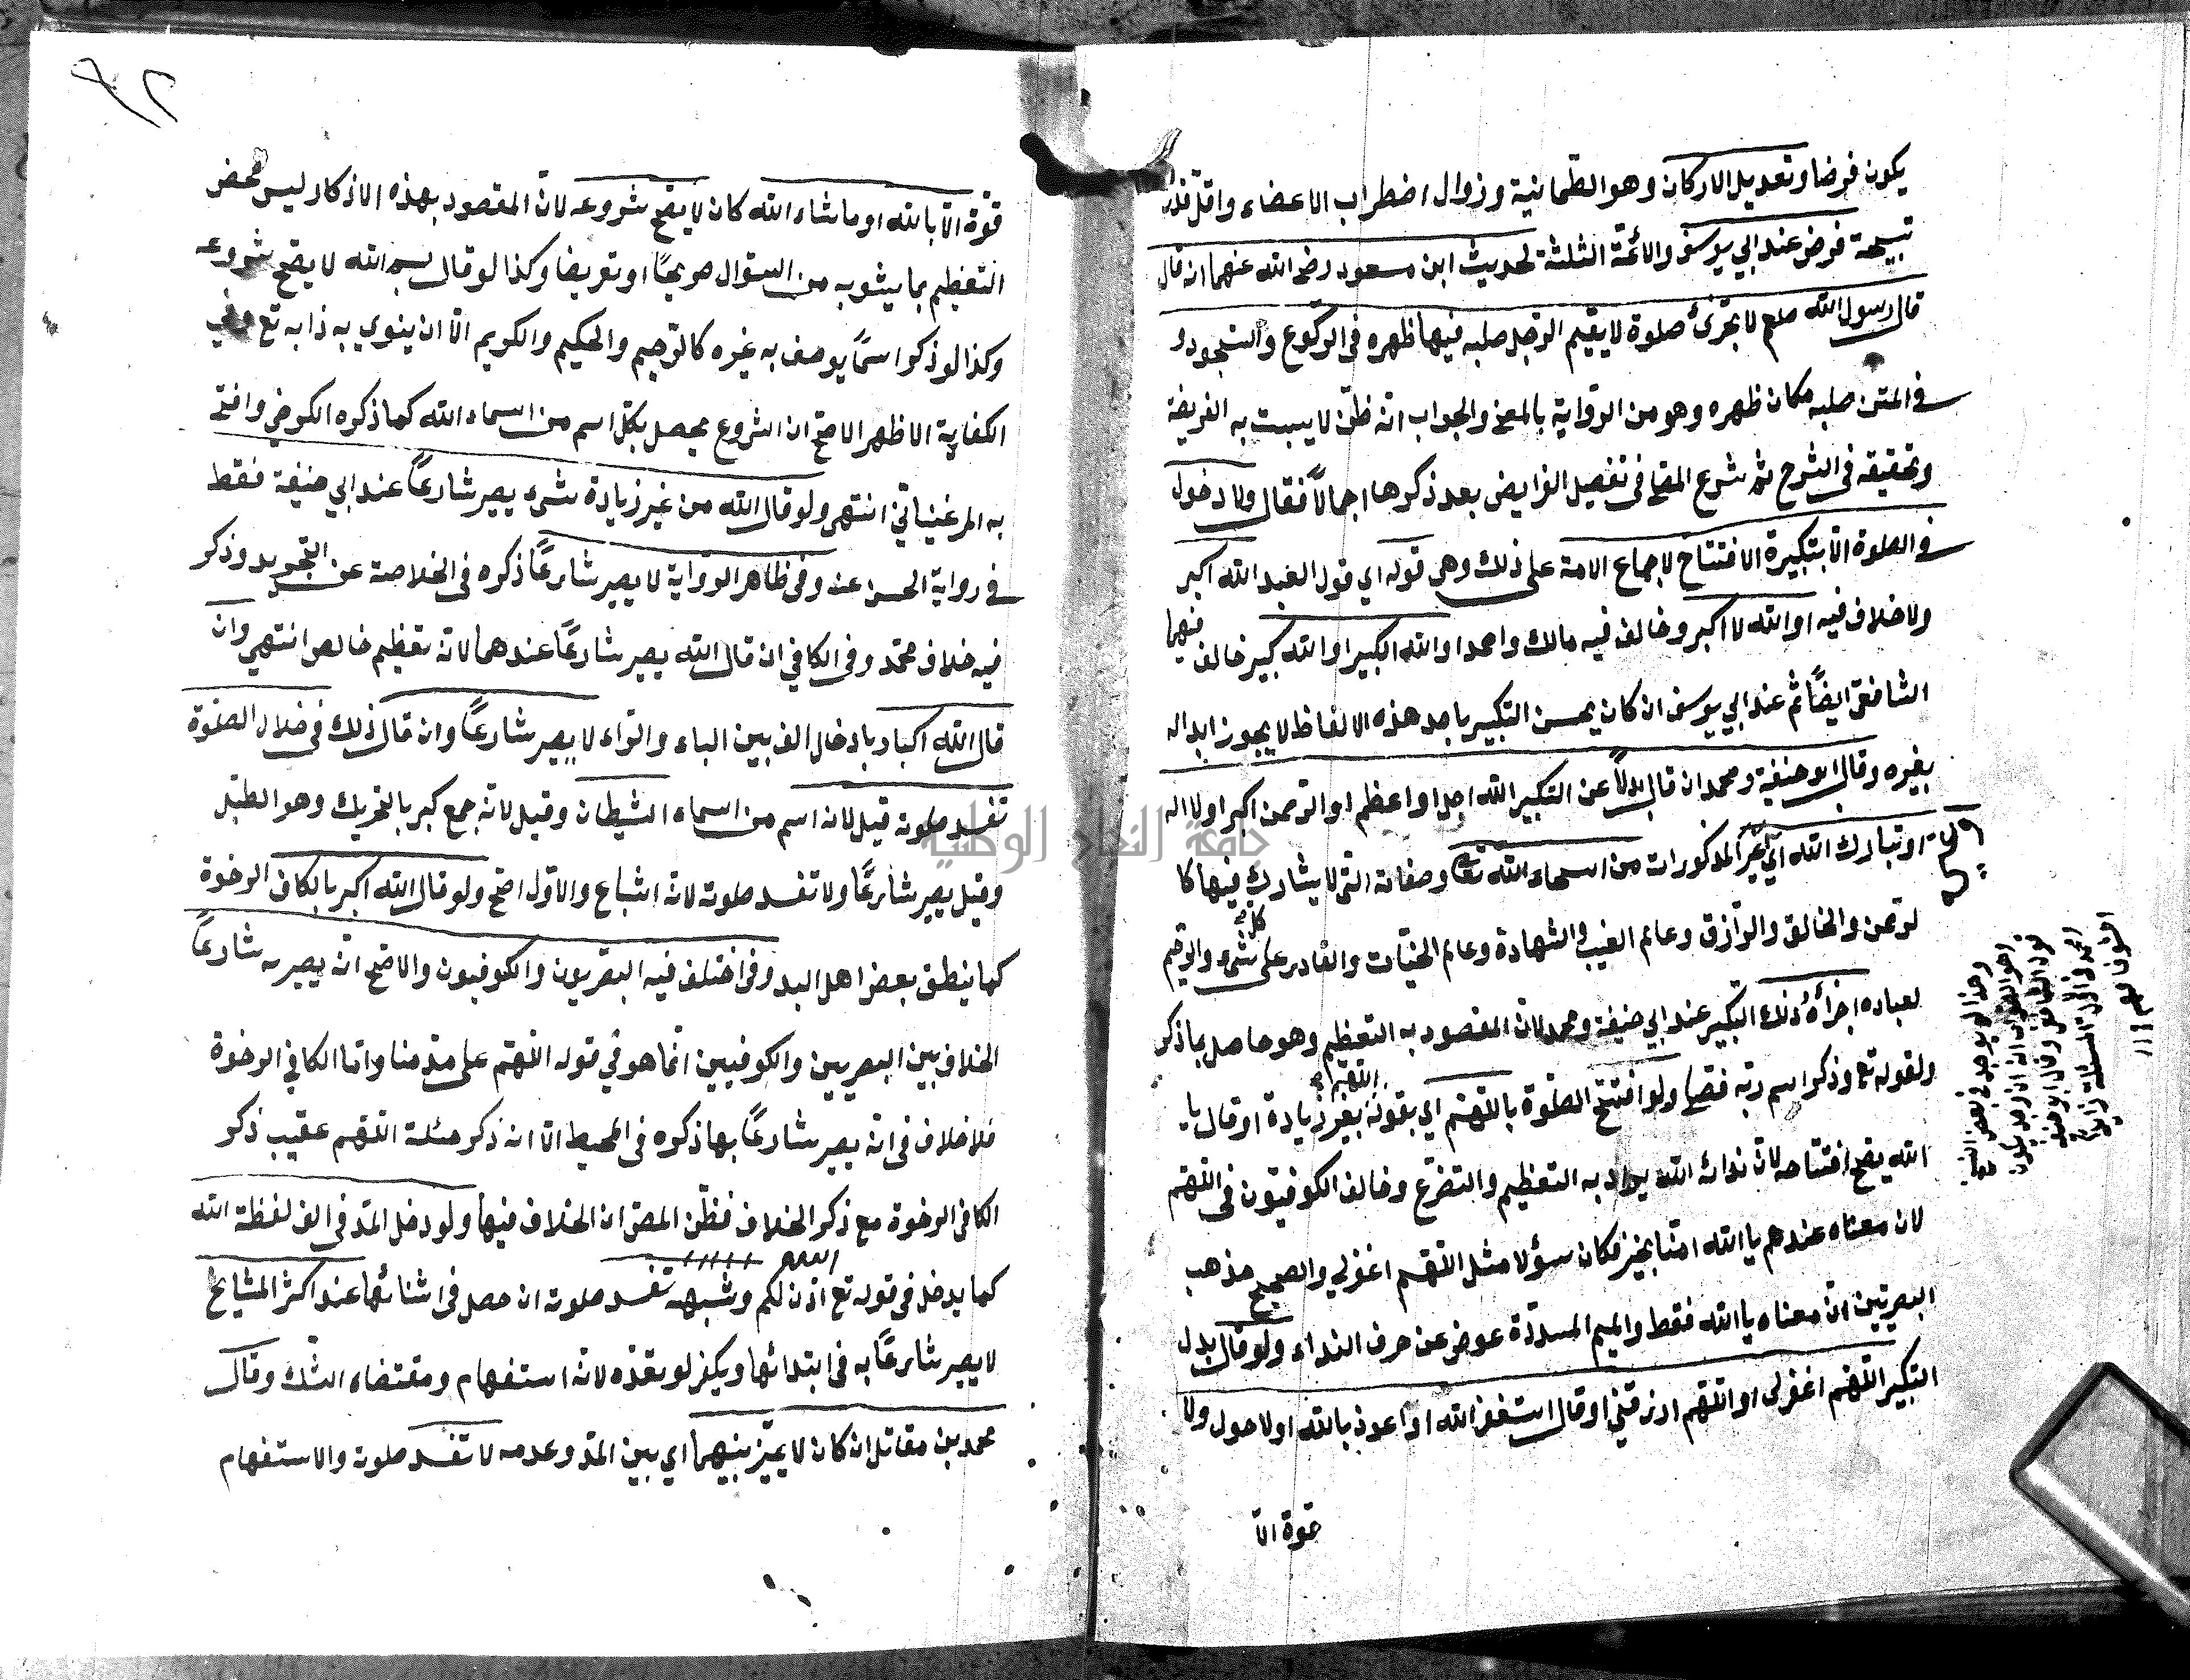 يكون فرضا وتعديل الاركان وهو الطمانية وزوال اضطراب الاعضاء واقله قدر
تسبيحة فرض عند ابي يوسف والائمة الثلثة لحديث ابن مسعود رضي الله عنهما انه قال
قال رسول الله صلعم لا تجزئ صلوة لا يقيم الرجل صلبه فيها ظهره في الركوع والسجود و
في المتن صلبه مكان ظهره وهو من الرواية بالمعنى والجواب انه ظني لا يثبت به الفريضة
وتحقيقه في الشرح ثم شرع المصنف في تفصيل الفرايض بعد ذكرها اجمالاً فقال ولا دخول
في الصلوة الا بتكبيرة الافتتاح لاجماع الامة على ذلك وهي قوله اي قول العبد الله اكبر
ولا خلاف فيه او الله الاكبر وخالف فيه مالك واحمد او الله الكبير او الله كبير خالف فيهما
الشافعي ايضًا ثم عند ابي يوسف ان كان يحسن التكبير باحد هذه الالفاظ لا يجوز ابداله
بغيره وقال ابو حنيفة ومحمد ان قال بدلاً عن التكبير الله اجل او اعظم او الرحمن اكبر او لا اله
او تبارك الله اي غير المذكورات من اسماء الله تعا وصفاته التي لا يشارك فيها كا
لرحمن والخالق والرازق وعالم الغيب والشهادة وعالم الخفيات والقادر على كل شيء والرحيم
لعباده اجزأه ذلك التكبير عند ابي حنيفة ومحمد لان المقصود به التعظيم وهو حاصل بما ذكر
ولقوله تع وذكر اسم ربه فصلى ولو افتتح الصلوة باللهم اي بقوله اللهم بغير زيادة او قال يا
الله يصح افتتاحه لان نداء الله يراد به التعظيم والتضرع وخالف الكوفيون في اللهم
لان معناه عندهم يا الله امنا بخير فكان سؤلا مثل اللهم اغفرلي والصحيح مذهب
البصريين ان معناه يا الله فقط والميم المسددة عوض عن حرف النداء ولو قال بدل
التكبير اللهم اغفرلي او اللهم ارزقني او قال استغفر الله او اعوذ بالله او لا حول ولا
قوة الا
وهذا لو يوجد في بعض النسخ
نور
وقال ابو حنيفة
٩٢
قوة الا بالله او ما شاء الله كان لا يصح شروعه لان المقصود بهذه الاذكار ليس محض
التعظيم بما يشوبه من السؤال صريحًا او تعريضا وكذا لو قال بسم الله لا يصح شروعه
وكذا لو ذكر اسمًا يوصف به غيره كالرحيم والحكيم والكريم الا ان ينوي به ذاته تع وفي
الكفاية الاظهر الاصح ان الشروع يحصل بكل اسم من اسماء الله كما ذكره الكرخي وافتى
به المرغيناني انتهى ولو قال الله من غير زيادة شيء يصير شارعًا عند ابي حنيفة فقط
في رواية الحسن عنه وفي ظاهر الرواية لا يصير شارعًا ذكره في الخلاصة عن التجريد وذكر
فيه خلاف محمد وفي الكافي ان قال الله يصير شارعًا عندهما لانه تعظيم خالص انتهى وان
قال الله اكبار بادخال الف بين الباء والراء لا يصير شارعًا وان قال ذلك في خلال الصلوة
تفسد صلوته قيل لانه اسم من اسماء الشيطان وقيل لانه جمع كبر بالتحريك وهو الطبل
وقيل يصير شارعًا ولا تفسد صلوته لانه اشباع والاول اصح ولو قال الله اكبر بالكاف الرخوة
كما ينطق بعض اهل البدو فقد اختلف فيه البصريون والكوفيون والاصح انه يصير شارعًا
الخلاف بين البصريين والكوفيين انما هو في قوله اللهم على ما قدمنا واما الكاف الرخوة
فلا خلاف في انه يصير شارعًا بها ذكره في المحيط الا انه ذكر مسئلة اللهم عقيب ذكر
الكاف الرخوة مع ذكر الخلاف فظن المصنف ان الخلاف فيها ولو دخل المد في الف لفظة الله
كما يدخل في قوله تع آذن لكم وشبهه تفسد صلوته ان حصل في اثنائها عند اكثر المشايخ
لا يصير شارعًا به في ابتدائها ويكفر لو تعمده لانه استفهام ومقتضاه الشك وقال
محمد بن مقاتل ان كان لا يميز بينهما اي بين المد وعدمه لا تفسد صلوته والاستفهام
جامعة النجاح الوطنية